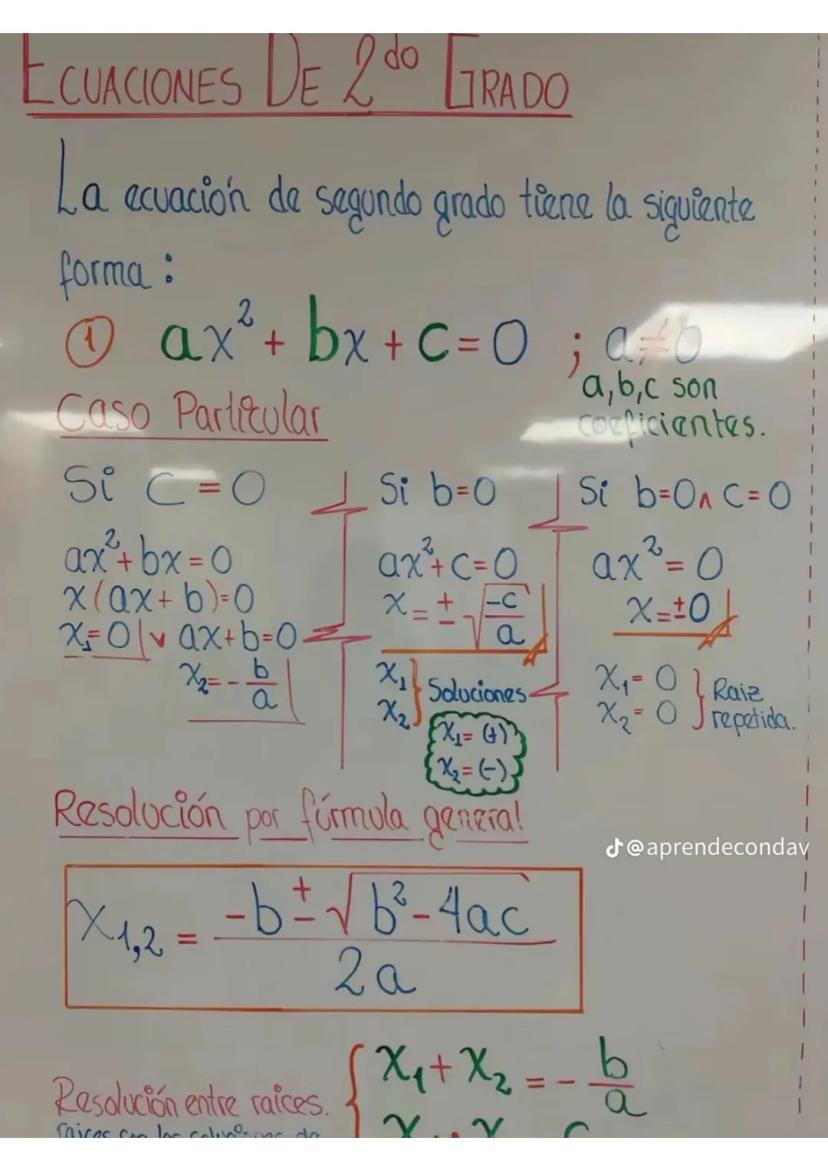 ECUACIONES DE 2do GRADO
La ecuación de segundo grado tiene la siguiente
forma:
① ax² + bx + c = 0 ; a ≠ 0
a, b, c son
coeficientes.
Caso Particular
Si c = 0
ax² + bx = 0
x(ax + b) = 0
x₁ = 0 ∨ ax + b = 0
x₂ = - b/a
Si b = 0
ax² + c = 0
x = ± √(-c/a)
x₁
x₂ } Soluciones
x₁ = (+)
x₂ = (-)
Si b = 0 ∧ c = 0
ax² = 0
x = ±0
x₁ = 0
x₂ = 0 } Raiz
repetida.
Resolución por fórmula general
@aprendecondav
x₁,₂ = (-b ± √(b² - 4ac)) / 2a
Resolución entre raices. { x₁ + x₂ = - b/a